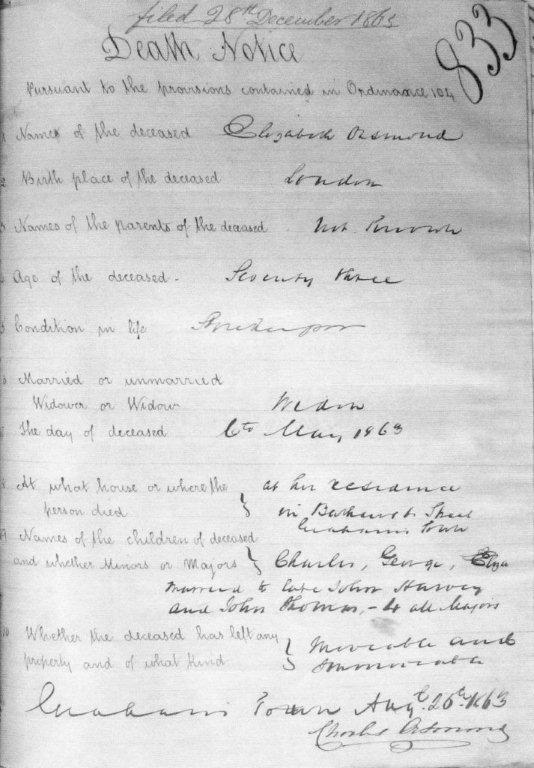 filed 28th December 1863
833
Death Notice
Pursuant to the provisions contained in Ordinance 104
1 Names of the deceased Elizabeth Orsmond
2 Birth place of the deceased London
3 Names of the parents of the deceased. Not Known
Age of the deceased. Seventy three
5 Condition in life Storekeeper
6 Married or unmarried
Widower or Widow Widow
The day of deceased 6th May 1863
8 At what house or where the } at her residence
person died in Bathurst Street
Grahams Town
9 Names of the children of deceased
and whether Minors or Majors } Charles, George, Eliza
married to late John Harvey
and John Thomas, - 4 all Majors
10 Whether the deceased has left any } Moveable and
property and of what kind Immoveable
Grahams Town Augt. 26th 1863
Charles Orsmond